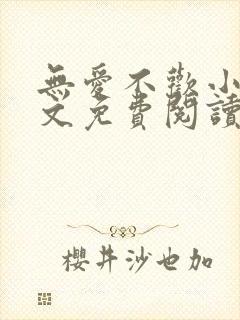 無愛不歡小
文免費閱讀
櫻井沙也加